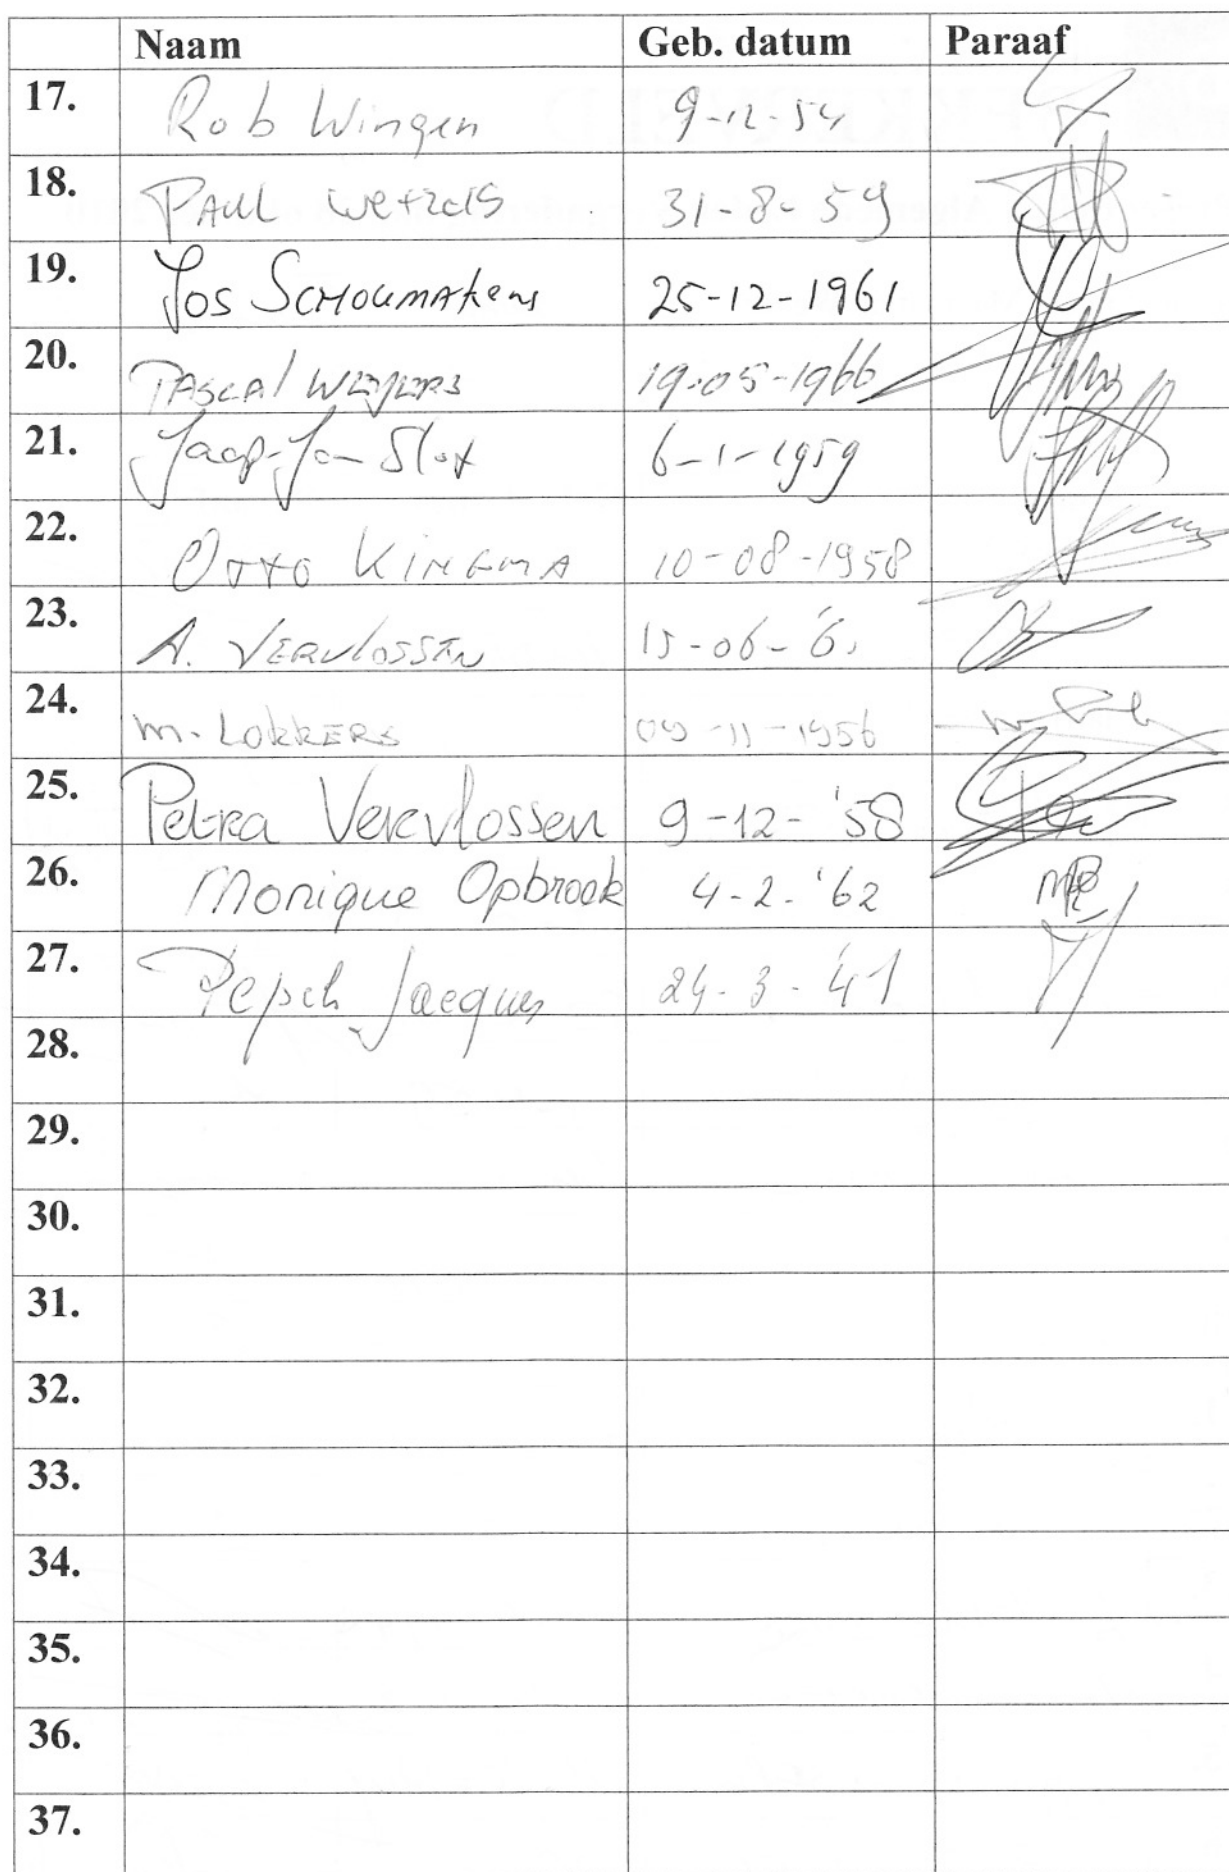 Naam Geb. datum Paraaf
17. Rob Wingen 9-12-54
18. PAUL wetzels 31-8-59
19. Jos SCHOUMAKERS 25-12-1961
20. PASCAL WEIJERS 19-05-1966
21. Jaap-Jan Slot 6-1-1959
22. OTTO KINGMA 10-08-1958
23. A. VERVLOSSEN 15-06-
24. M. LOKKERS 09-11-1956
25. Petra Vervlossen 9-12-'58
26. Monique Opbroek 4-2-'62
27. Jacques 24-3-'41
28.
29.
30.
31.
32.
33.
34.
35.
36.
37.